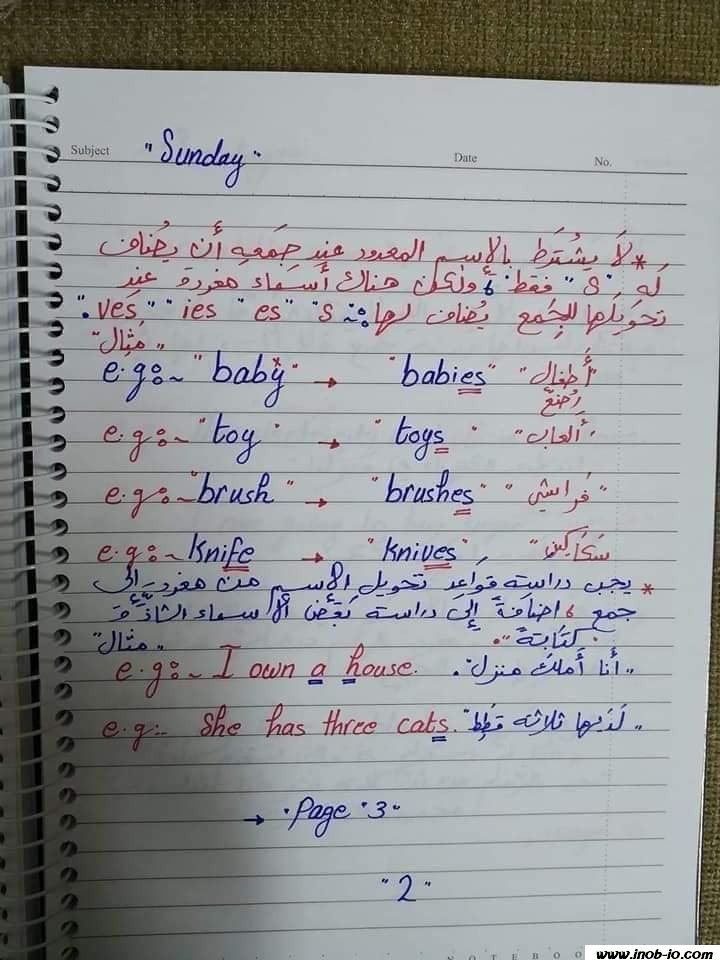 Subject "Sunday" Date No.
* لَا يشْتَرَط بالإسم المعدود عند جَمَعهِ أَن يضاف
لَه "s" فقط، ولكن هناك أَسمَاء مفردة عند
تحوَيلها للجَمع يضاف لها:~ "s" "es" "ies" "ves".
"مثال"
e.g:~ "baby" → "babies" "أَطفال"
رضع
e.g:~ "toy" → "toys" "ألعاب"
e.g:~ "brush" → "brushes" "فراشي"
e.g:~ Knife → "knives" "سكاكين"
* يجب دراسته قواعد تحويل الإسم من مفرد إلى
جمع، اضافةً إلى دراسته بعض الأسماء الشاذة
كتابةً. "مثال"
e.g:~ I own a house. "أنا أَملك منزل".
e.g:- She has three cats. "لَديها ثلاثه قطط"
→ "Page "3"
"2"
NOTEBOO
www.inob-io.com